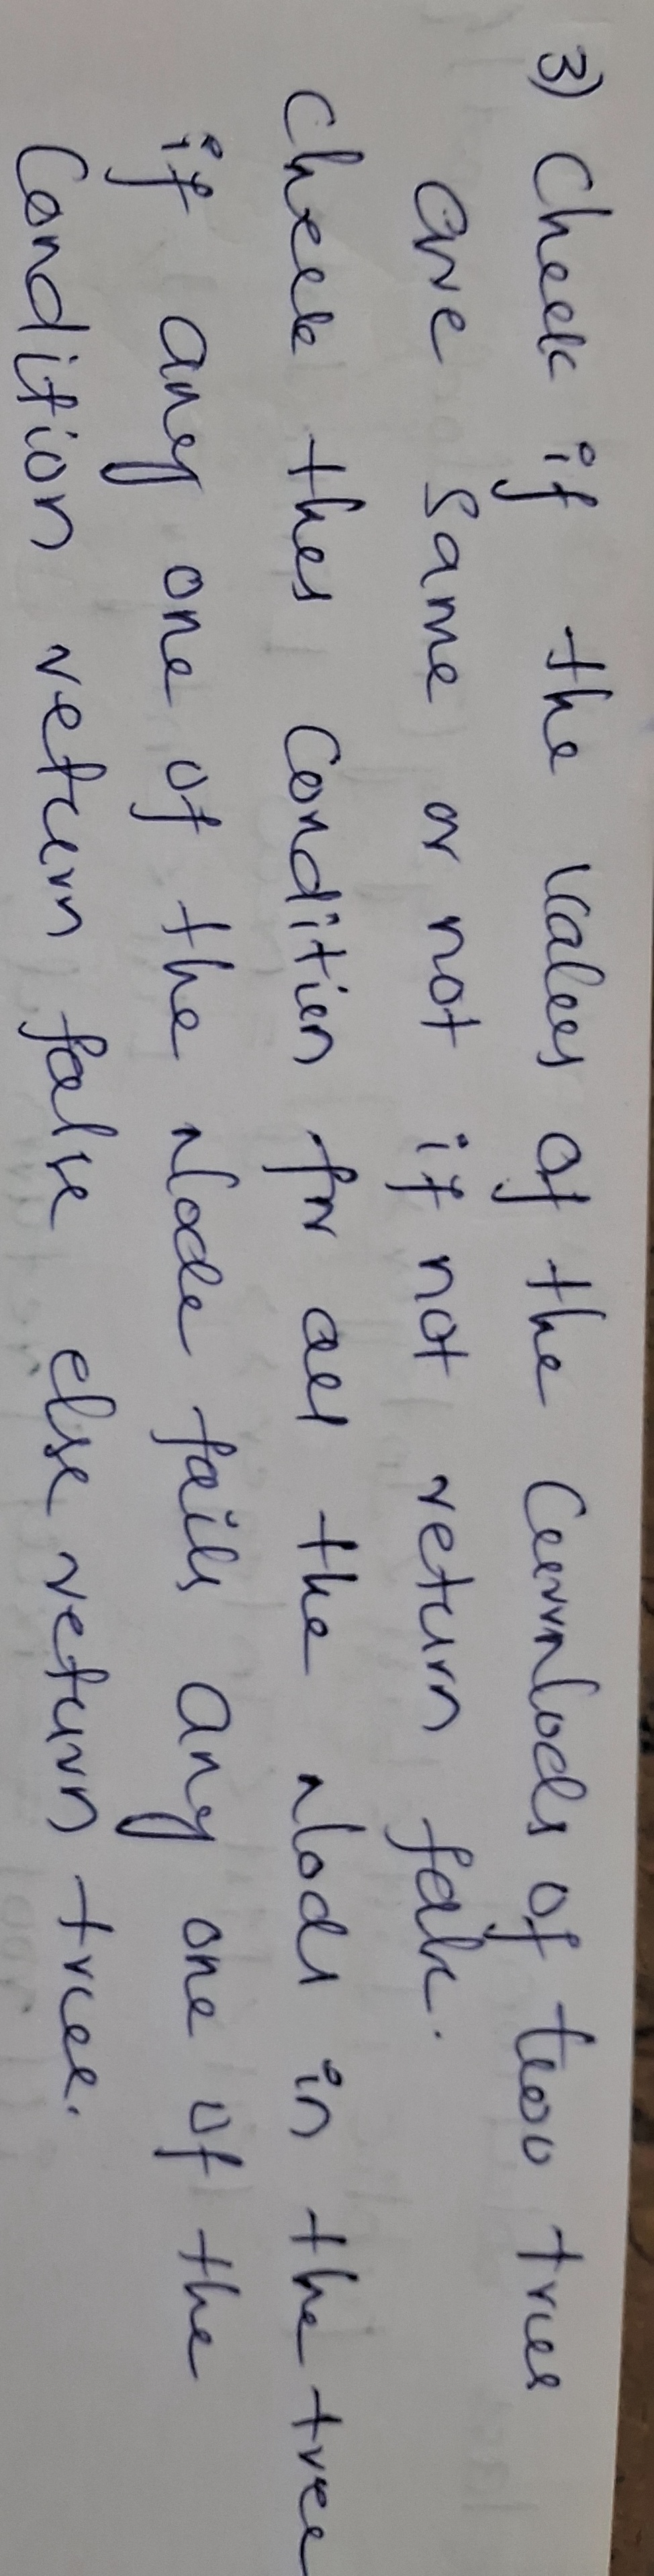 3) Check if the values of the CurrNodes of two trees
are same or not if not return false.
Check thes Condition for all the Nodes in the tree
if any one of the Node fails any one of the
Condition return false else return true.